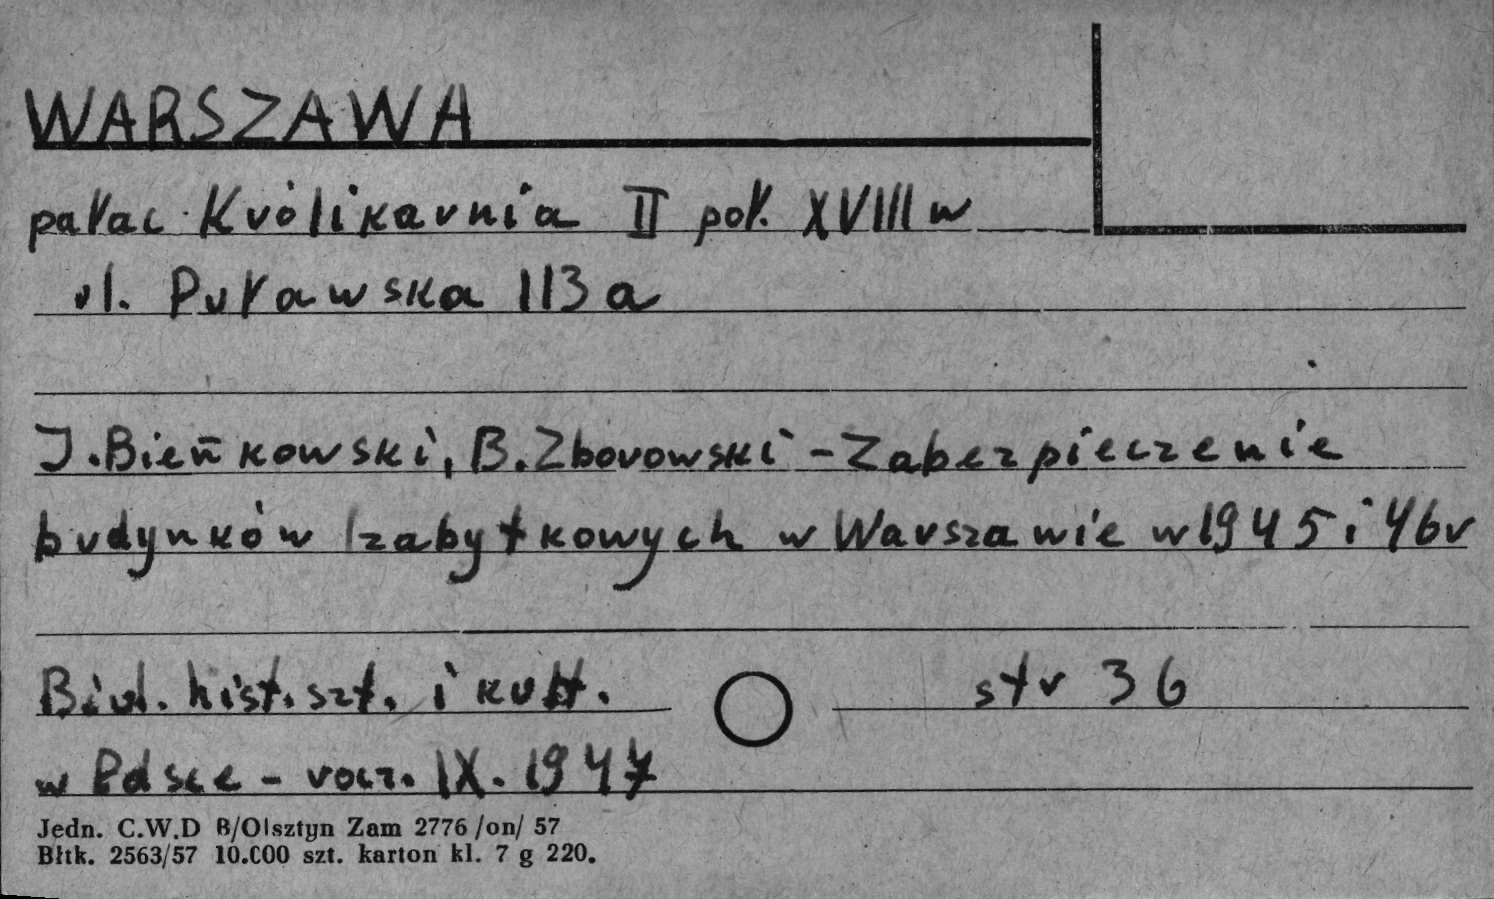 WARSZAWA
pałac Królikarnia II poł. XVIII w
ul. Puławska 113 a
J. Bieńkowski, B. Zborowski - Zabezpieczenie
budynków zabytkowych w Warszawie w 1945 i 46 r
Biul. hist. szt. i kult. str 36
w Polsce - rocz. IX. 1947
Jedn. C.W.D B/Olsztyn Zam 2776 /on/ 57
Błtk. 2563/57 10.000 szt. karton kl. 7 g 220.